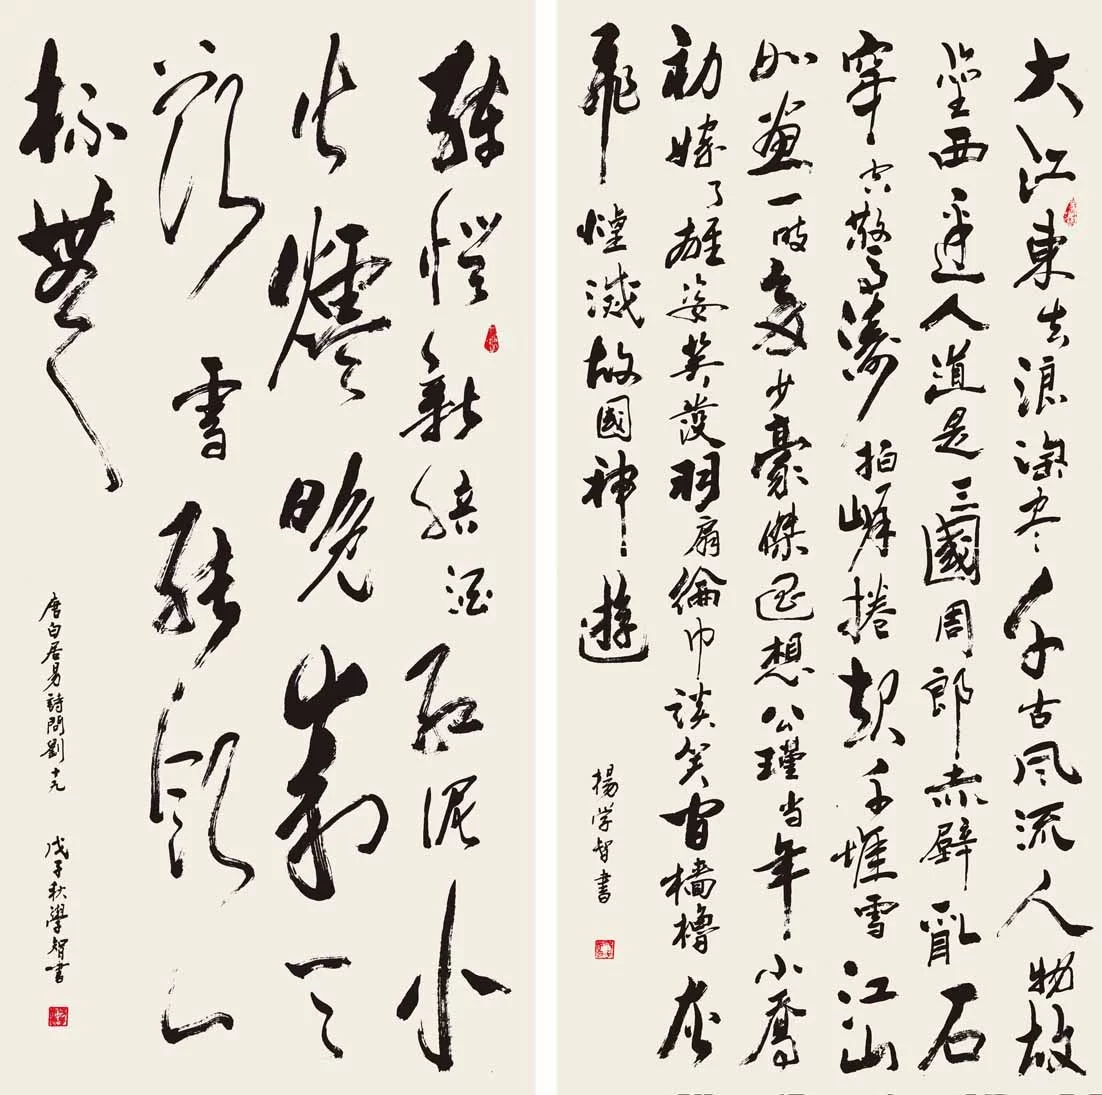 大江東去浪淘尽千古风流人物故
壘西邊人道是三國周郎赤壁亂石
穿空驚濤拍岸捲起千堆雪江山
如畫一時多少豪傑遥想公瑾当年小喬
初嫁了雄姿英發羽扇綸巾談笑間檣櫓灰
飛煙滅故國神遊
楊学智書
綠螘新醅酒紅泥小
火爐晚來天
欲雪能飲一
杯無
唐白居易詩問劉十九 戊子秋學智書